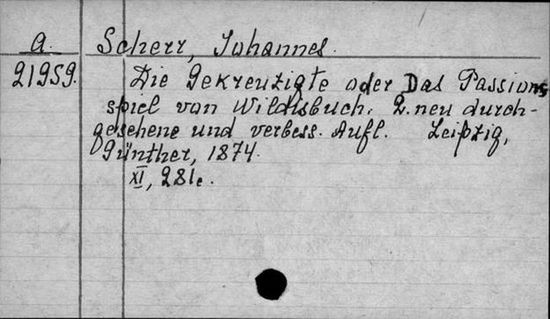 a.
Scherr, Johannes.
21959.
Die Gekreuzigte oder Das Passions
spiel von Wildisbuch. 2. neu durch-
gesehene und verbess. Aufl. Leipzig,
Günther, 1874.
XI, 281